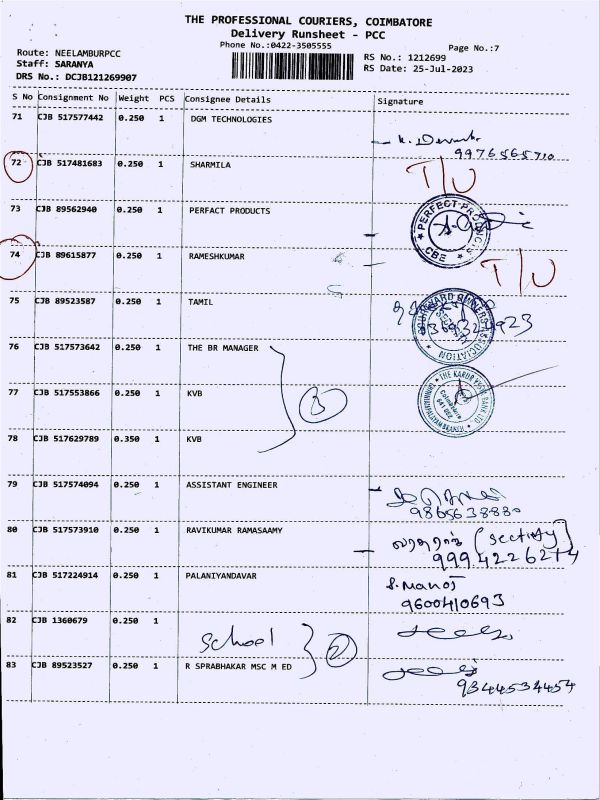 THE PROFESSIONAL COURIERS, COIMBATORE
Delivery Runsheet - PCC
Phone No.:0422-3505555
Page No.:7
Route: NEELAMBURPCC
RS No.: 1212699
Staff: SARANYA
RS Date: 25-Jul-2023
DRS No.: DCJB121269907
S No Consignment No Weight PCS Consignee Details Signature
71 CJB 517577442 0.250 1 DGM TECHNOLOGIES
9976565710
72 CJB 517481683 0.250 1 SHARMILA T/U
73 CJB 89562940 0.250 1 PERFACT PRODUCTS
PERFECT PRODUCTS
CBE
74 CJB 89615877 0.250 1 RAMESHKUMAR T/U
75 CJB 89523587 0.250 1 TAMIL
OWNERS ASSOCIATION
76 CJB 517573642 0.250 1 THE BR MANAGER
77 CJB 517553866 0.250 1 KVB 3
THE KARUR VYSYA BANK LTD
Coimbatore
78 CJB 517629789 0.350 1 KVB
79 CJB 517574094 0.250 1 ASSISTANT ENGINEER
9865638880
80 CJB 517573910 0.250 1 RAVIKUMAR RAMASAAMY
9994226274
81 CJB 517224914 0.250 1 PALANIYANDAVAR
S. Manoj
9600410693
82 CJB 1360679 0.250 1
School 2
83 CJB 89523527 0.250 1 R SPRABHAKAR MSC M ED
9344534454